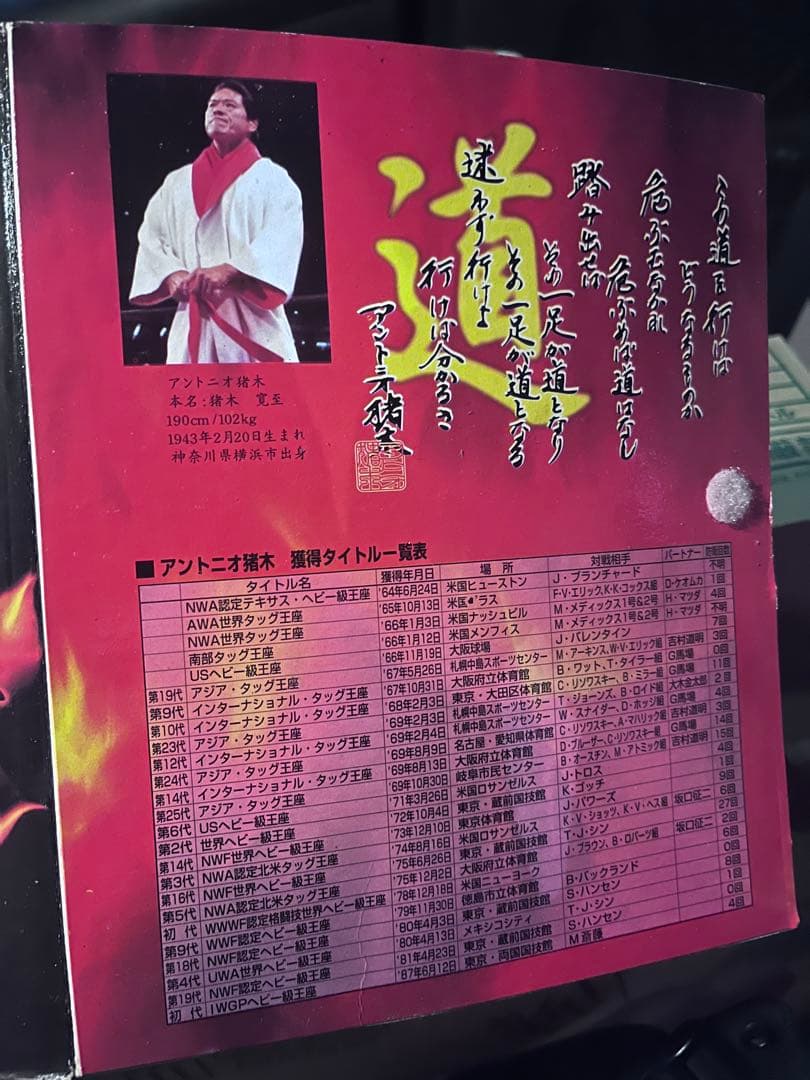 道
この道を行けば
どうなるものか
危ぶむなかれ
危ぶめば道はなし
踏み出せば
その一足が道となり
その一足が道となる
迷わず行けよ
行けば分かるさ
アントニオ猪木
アントニオ猪木
本名:猪木 寛至
190cm/102kg
1943年2月20日生まれ
神奈川県横浜市出身
■アントニオ猪木 獲得タイトル一覧表
タイトル名
NWA認定テキサス・ヘビー級王座
AWA世界タッグ王座
NWA世界タッグ王座
南部タッグ王座
USヘビー級王座
第19代 アジア・タッグ王座
第9代 インターナショナル・タッグ王座
第10代 インターナショナル・タッグ王座
第23代 アジア・タッグ王座
第12代 インターナショナル・タッグ王座
第24代 アジア・タッグ王座
第14代 インターナショナル・タッグ王座
第25代 アジア・タッグ王座
第6代 USヘビー級王座
第2代 世界ヘビー級王座
第14代 NWF世界ヘビー級王座
第3代 NWA認定北米タッグ王座
第16代 NWF世界ヘビー級王座
第5代 NWA認定北米タッグ王座
初代 WWWF認定格闘技世界ヘビー級王座
第9代 WWF認定ヘビー級王座
第18代 NWF認定ヘビー級王座
第4代 UWA世界ヘビー級王座
第19代 NWF認定ヘビー級王座
初代 IWGPヘビー級王座
獲得年月日
'64年6月24日
'65年10月13日
'66年1月3日
'66年1月12日
'66年11月19日
'67年5月26日
'67年10月31日
'68年2月3日
'69年2月3日
'69年2月4日
'69年8月9日
'69年8月13日
'69年10月30日
'71年3月26日
'72年10月4日
'73年12月10日
'74年8月16日
'75年6月26日
'75年12月2日
'78年12月18日
'79年11月30日
'80年4月3日
'80年4月13日
'81年4月23日
'87年6月12日
場所
米国ヒューストン
米国ダラス
米国ナッシュビル
米国メンフィス
大阪球場
札幌中島スポーツセンター
大阪府立体育館
東京・大田区体育館
札幌中島スポーツセンター
名古屋・愛知県体育館
大阪府立体育館
岐阜市民センター
米国ロサンゼルス
東京・蔵前国技館
東京体育館
米国ロサンゼルス
東京・蔵前国技館
大阪府立体育館
米国ニューヨーク
徳島市立体育館
東京・蔵前国技館
メキシコシティ
東京・蔵前国技館
東京・両国国技館
対戦相手
J・ブランチャード
F・V・エリック,K・K・コックス組
M・メディックス1号&2号
M・メディックス1号&2号
J・バレンタイン
M・アーキンス、W・V・エリック組
B・ワット、T・タイラー組
C・リソワスキー、B・ミラー組
T・ジョーンズ、B・ロイド組
W・スナイダー、D・ホッジ組
C・リソワスキー、A・マハリック組
D・ブルーザー、C・リソワスキー組
B・オースチン、M・アトミック組
J・トロス
K・ゴッチ
J・パワーズ
K・V・ショッツ、K・V・ヘス組
T・J・シン
J・ブラウン、B・ロバーツ組
B・バックランド
S・ハンセン
T・J・シン
S・ハンセン
M斎藤
パートナー
D・ケオムカ
H・マツダ
H・マツダ
吉村道明
G馬場
G馬場
大木金太郎
G馬場
吉村道明
G馬場
吉村道明
坂口征二
坂口征二
防衛回数
不明
1回
4回
不明
7回
0回
11回
2回
4回
3回
3回
14回
15回
4回
1回
9回
6回
27回
2回
6回
0回
8回
1回
0回
4回